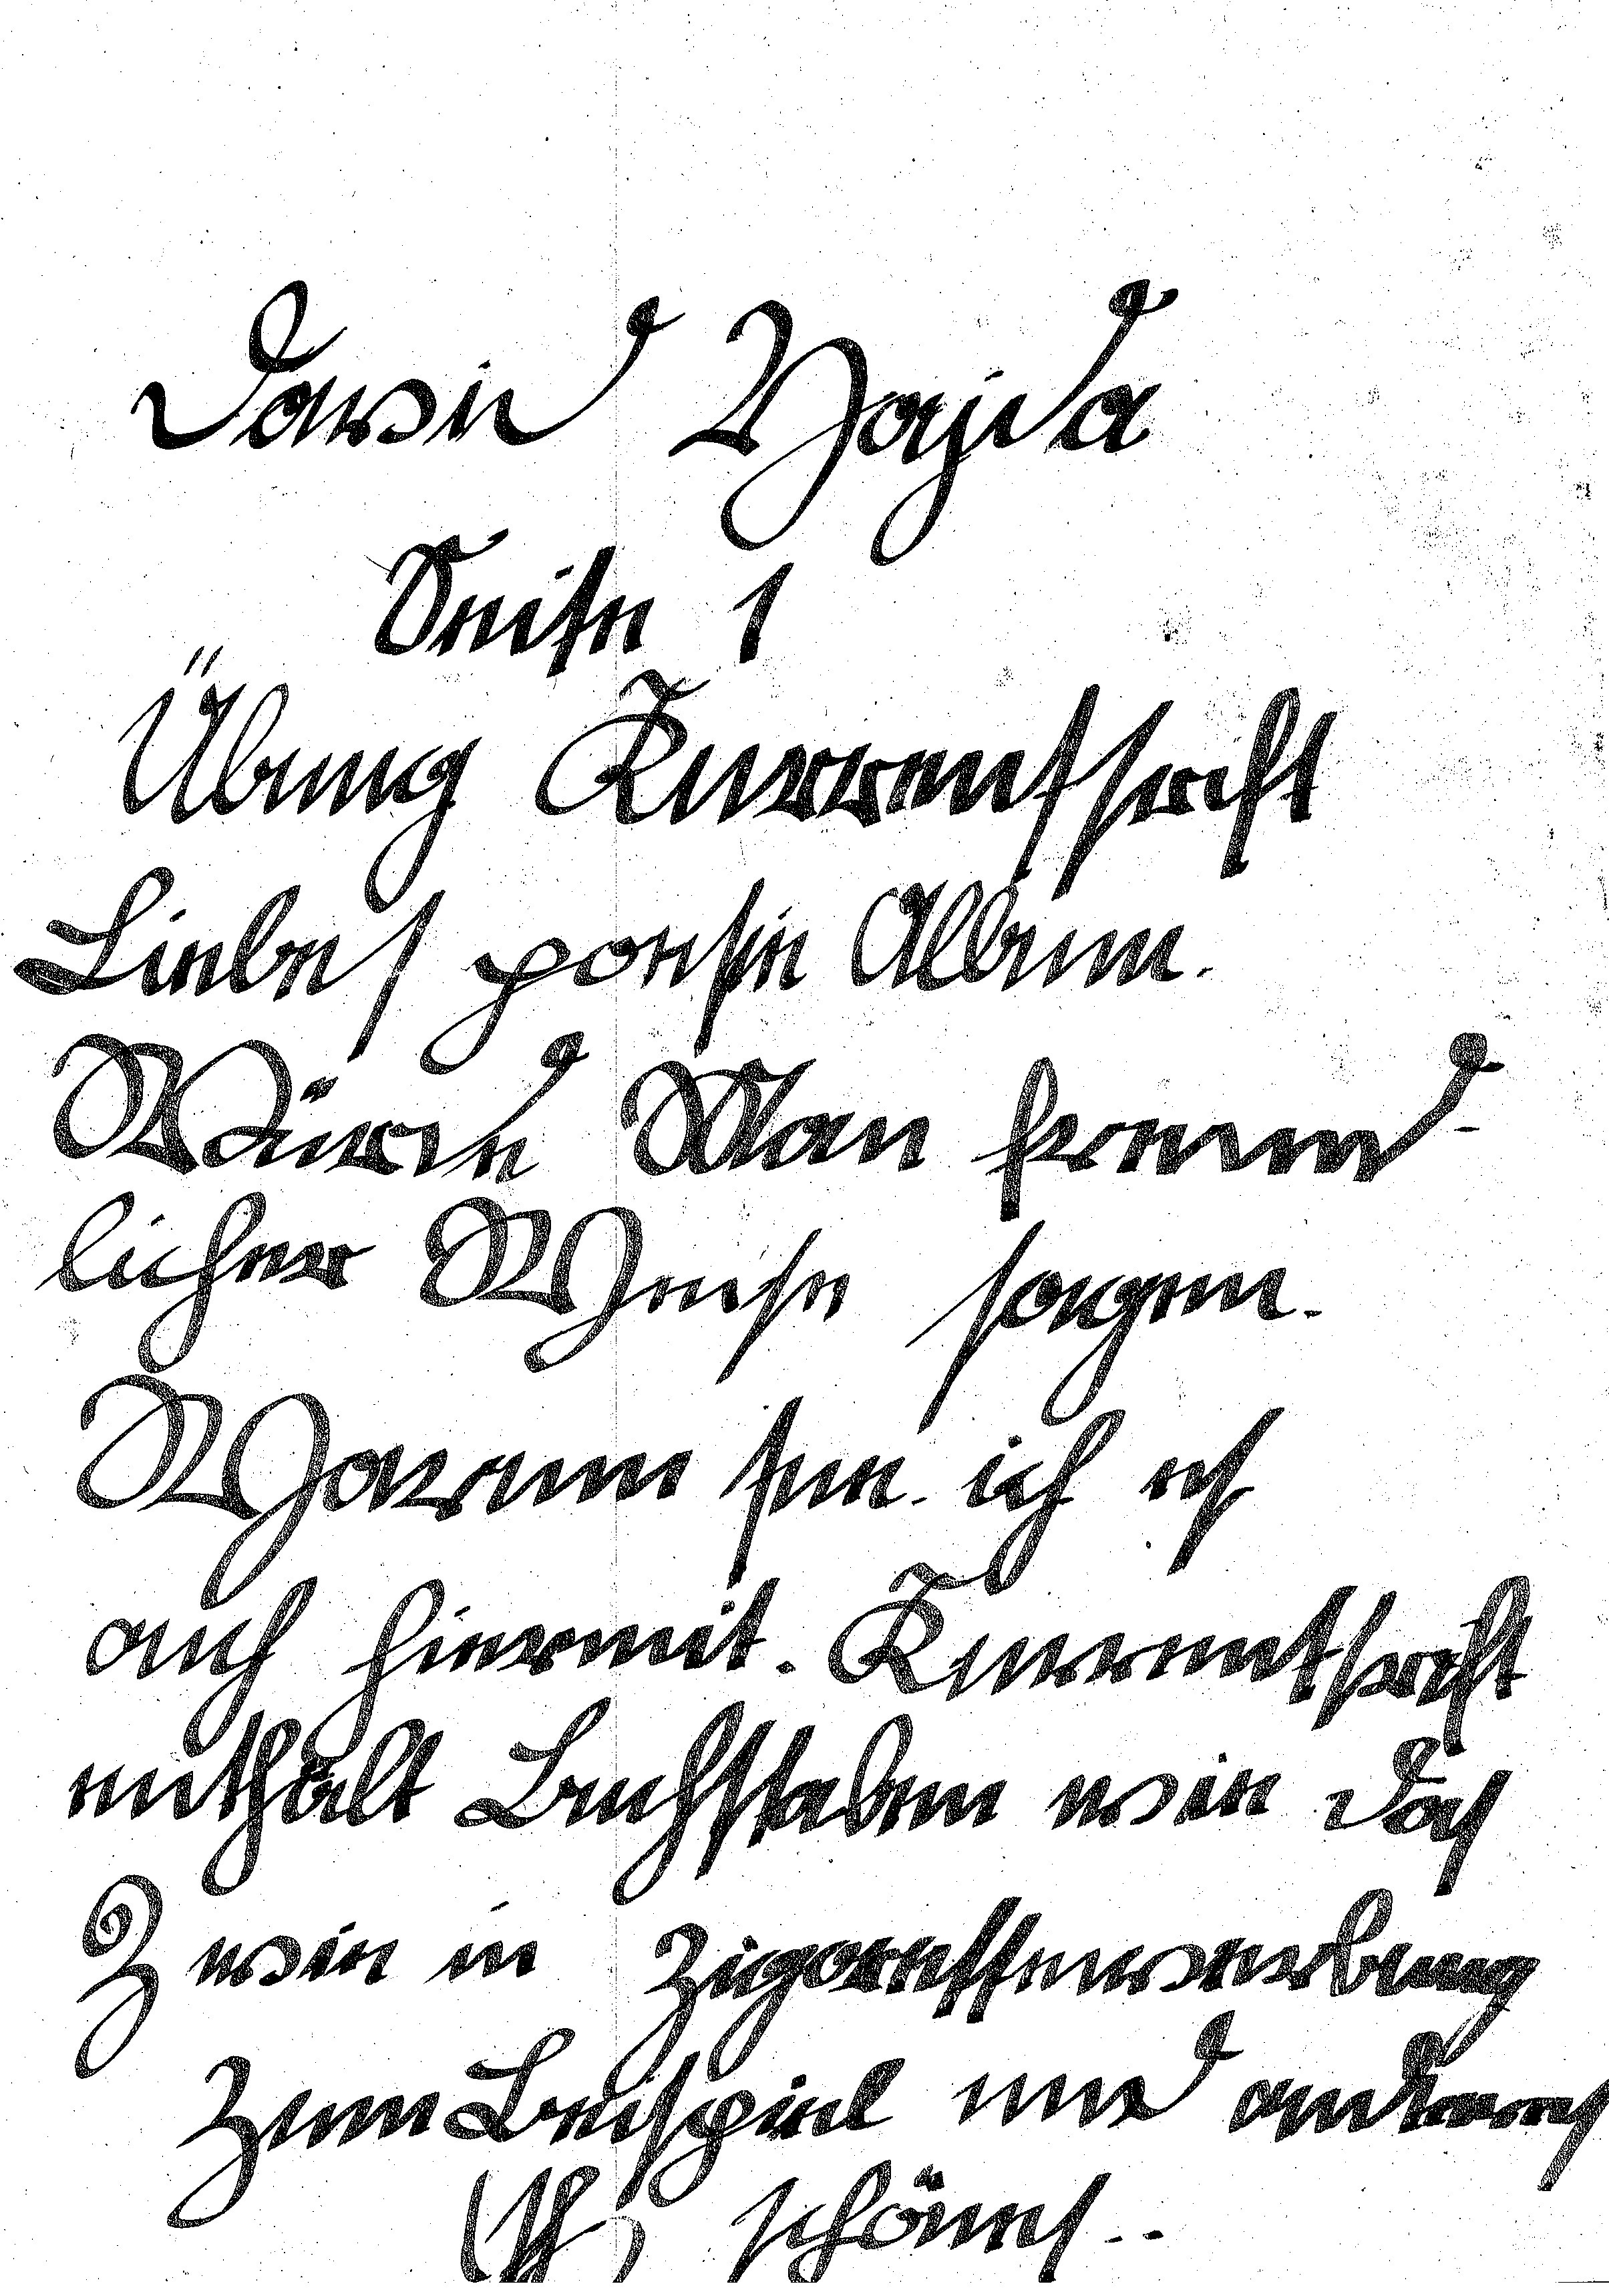 David Vajda
Seite 1
Übung Kurrentschrift
Liebes poesie Album.
Würde Man freund-
licher Weise sagen.
Warum tue ich es
auch hiermit. Kurrentschrift
enthält Buchstaben wie das
Z wie in Zigarettenwerbung
zum Beispiel und anderes
schönes..